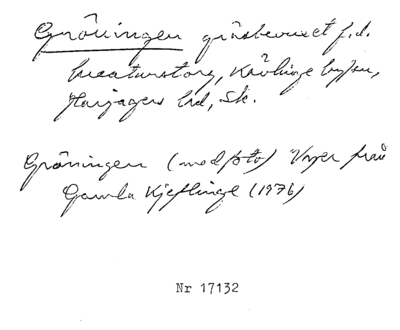 Gröningen gräsbevuxet f.d.
kreaturstorg, Kävlinge by/sn,
Harjagers hd, Sk.
Gröningen (med foto) Vyer från
Gamla Kjeflinge (1976)
Nr 17132